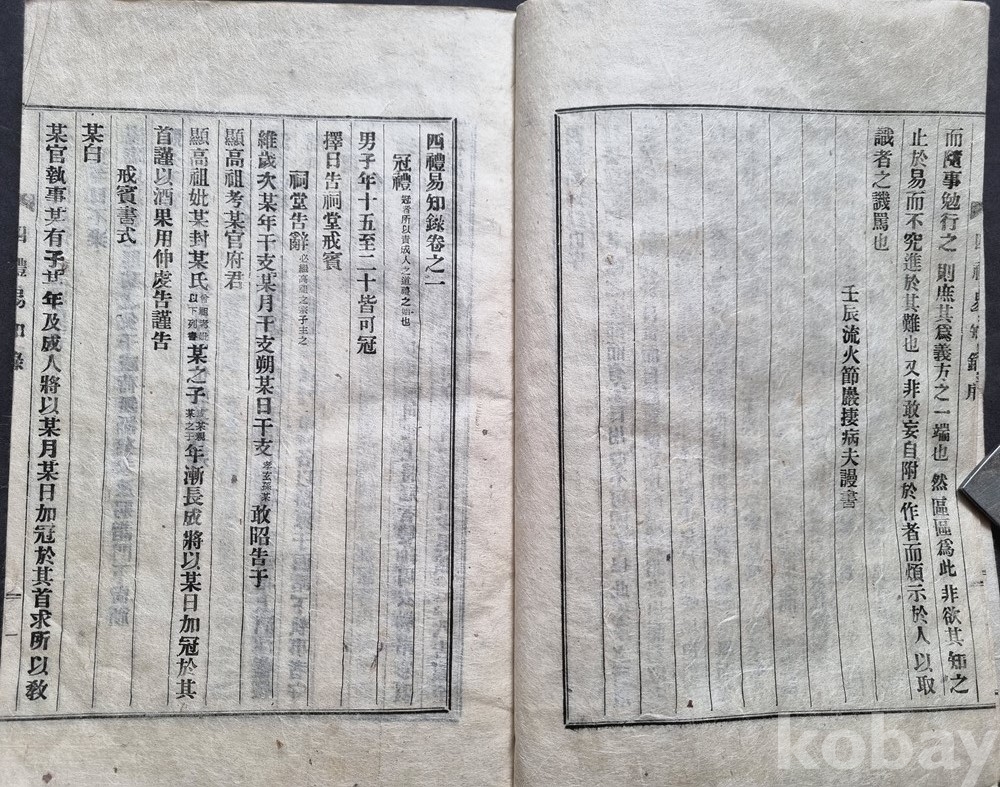 而隨事勉行之 則庶其爲義方之一端也 然 區區爲此 非欲其知之
止於易而不究進於其難也 又非敢妄自附於作者而煩示於人 以取
識者之譏罵也
壬辰流火節巖捿病夫謾書
四禮易知錄
四禮易知錄卷之一
冠禮 冠者所以責成人之道禮之始也
男子年十五至二十皆可冠
擇日告祠堂戒賓
祠堂告辭 必繼高祖之宗子主之
維歲次某年干支某月干支朔某日干支 孝玄孫某 敢昭告于
顯高祖考某官府君
顯高祖妣某封某氏 曾祖考妣以下列書 某之子 某之子 年漸長成將以某日加冠於其
首謹以酒果用伸虔告謹告
戒賓書式
某白
某官執事某有子某年及成人將以某月某日加冠於其首求所以敎
四禮易知錄
一
kobay